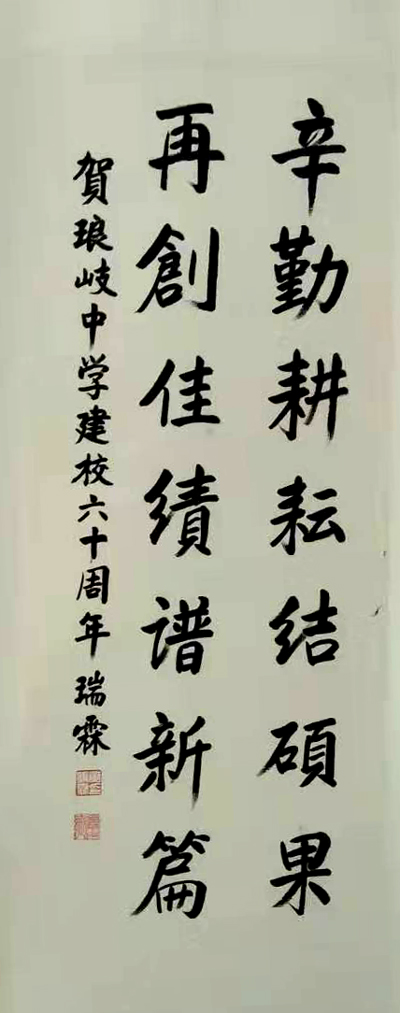 辛勤耕耘结硕果
再創佳績谱新篇
賀琅岐中学建校六十周年 瑞霖